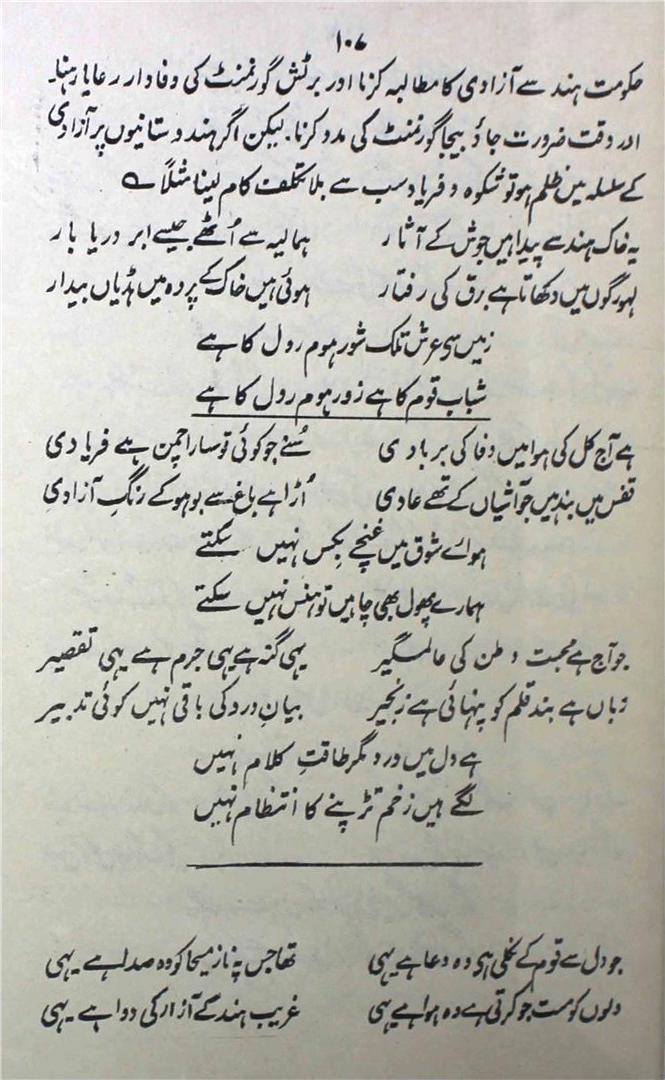 ۱۰۷
حکومت ہند سے آزادی کا مطالبہ کرنا اور برٹش گورنمنٹ کی وفادار رعایا رہنا۔
اور وقت ضرورت جاؤ بیجا گورنمنٹ کی مدد کرنا۔ لیکن اگر ہندوستانیوں پر آزادی
کے سلسلہ میں ظلم ہو تو شکوہ و فریاد سب سے بلا تکلف کام لینا مثلاً ؎
یہ خاک ہند سے پیدا ہیں جوش کے آثار ہمالیہ سے اُٹھے جیسے ابر دریا بار
لہو رگوں میں دکھاتا ہے برق کی رفتار ہوئی ہیں خاک کے پردہ میں ہڈیاں بیدار
زمیں سی عرش تلک شور ہوم رول کا ہے
شباب قوم کا ہے زور ہوم رول کا ہے
ہے آج کل کی ہوا میں وفا کی بربادی سُنے جو کوئی تو سارا چمن ہے فریادی
قفس میں بند ہیں جو آشیاں کے تھے عادی اُڑا ہے باغ سے بو ہو کے رنگِ آزادی
ہوائے شوق میں غنچے بکس نہیں سکتے
ہمارے پھول بھی چاہیں تو ہنس نہیں سکتے
جو آج ہے محبت وطن کی عالمگیر یہی گنہ ہے یہی جرم ہے یہی تقصیر
زباں ہے بند قلم کو پنہائی ہے زنجیر بیانِ درد کی باقی نہیں کوئی تدبیر
ہے دل میں درد مگر طاقتِ کلام نہیں
لگے ہیں زخم تڑپنے کا انتظام نہیں
جو دل سے قوم کے نکلی ہی وہ دعا ہے یہی تھا جس پہ ناز مسیحا کو وہ صدا ہے یہی
دلوں کو مست جو کرتی ہے وہ ہوا ہے یہی غریب ہند کے آزار کی دوا ہے یہی